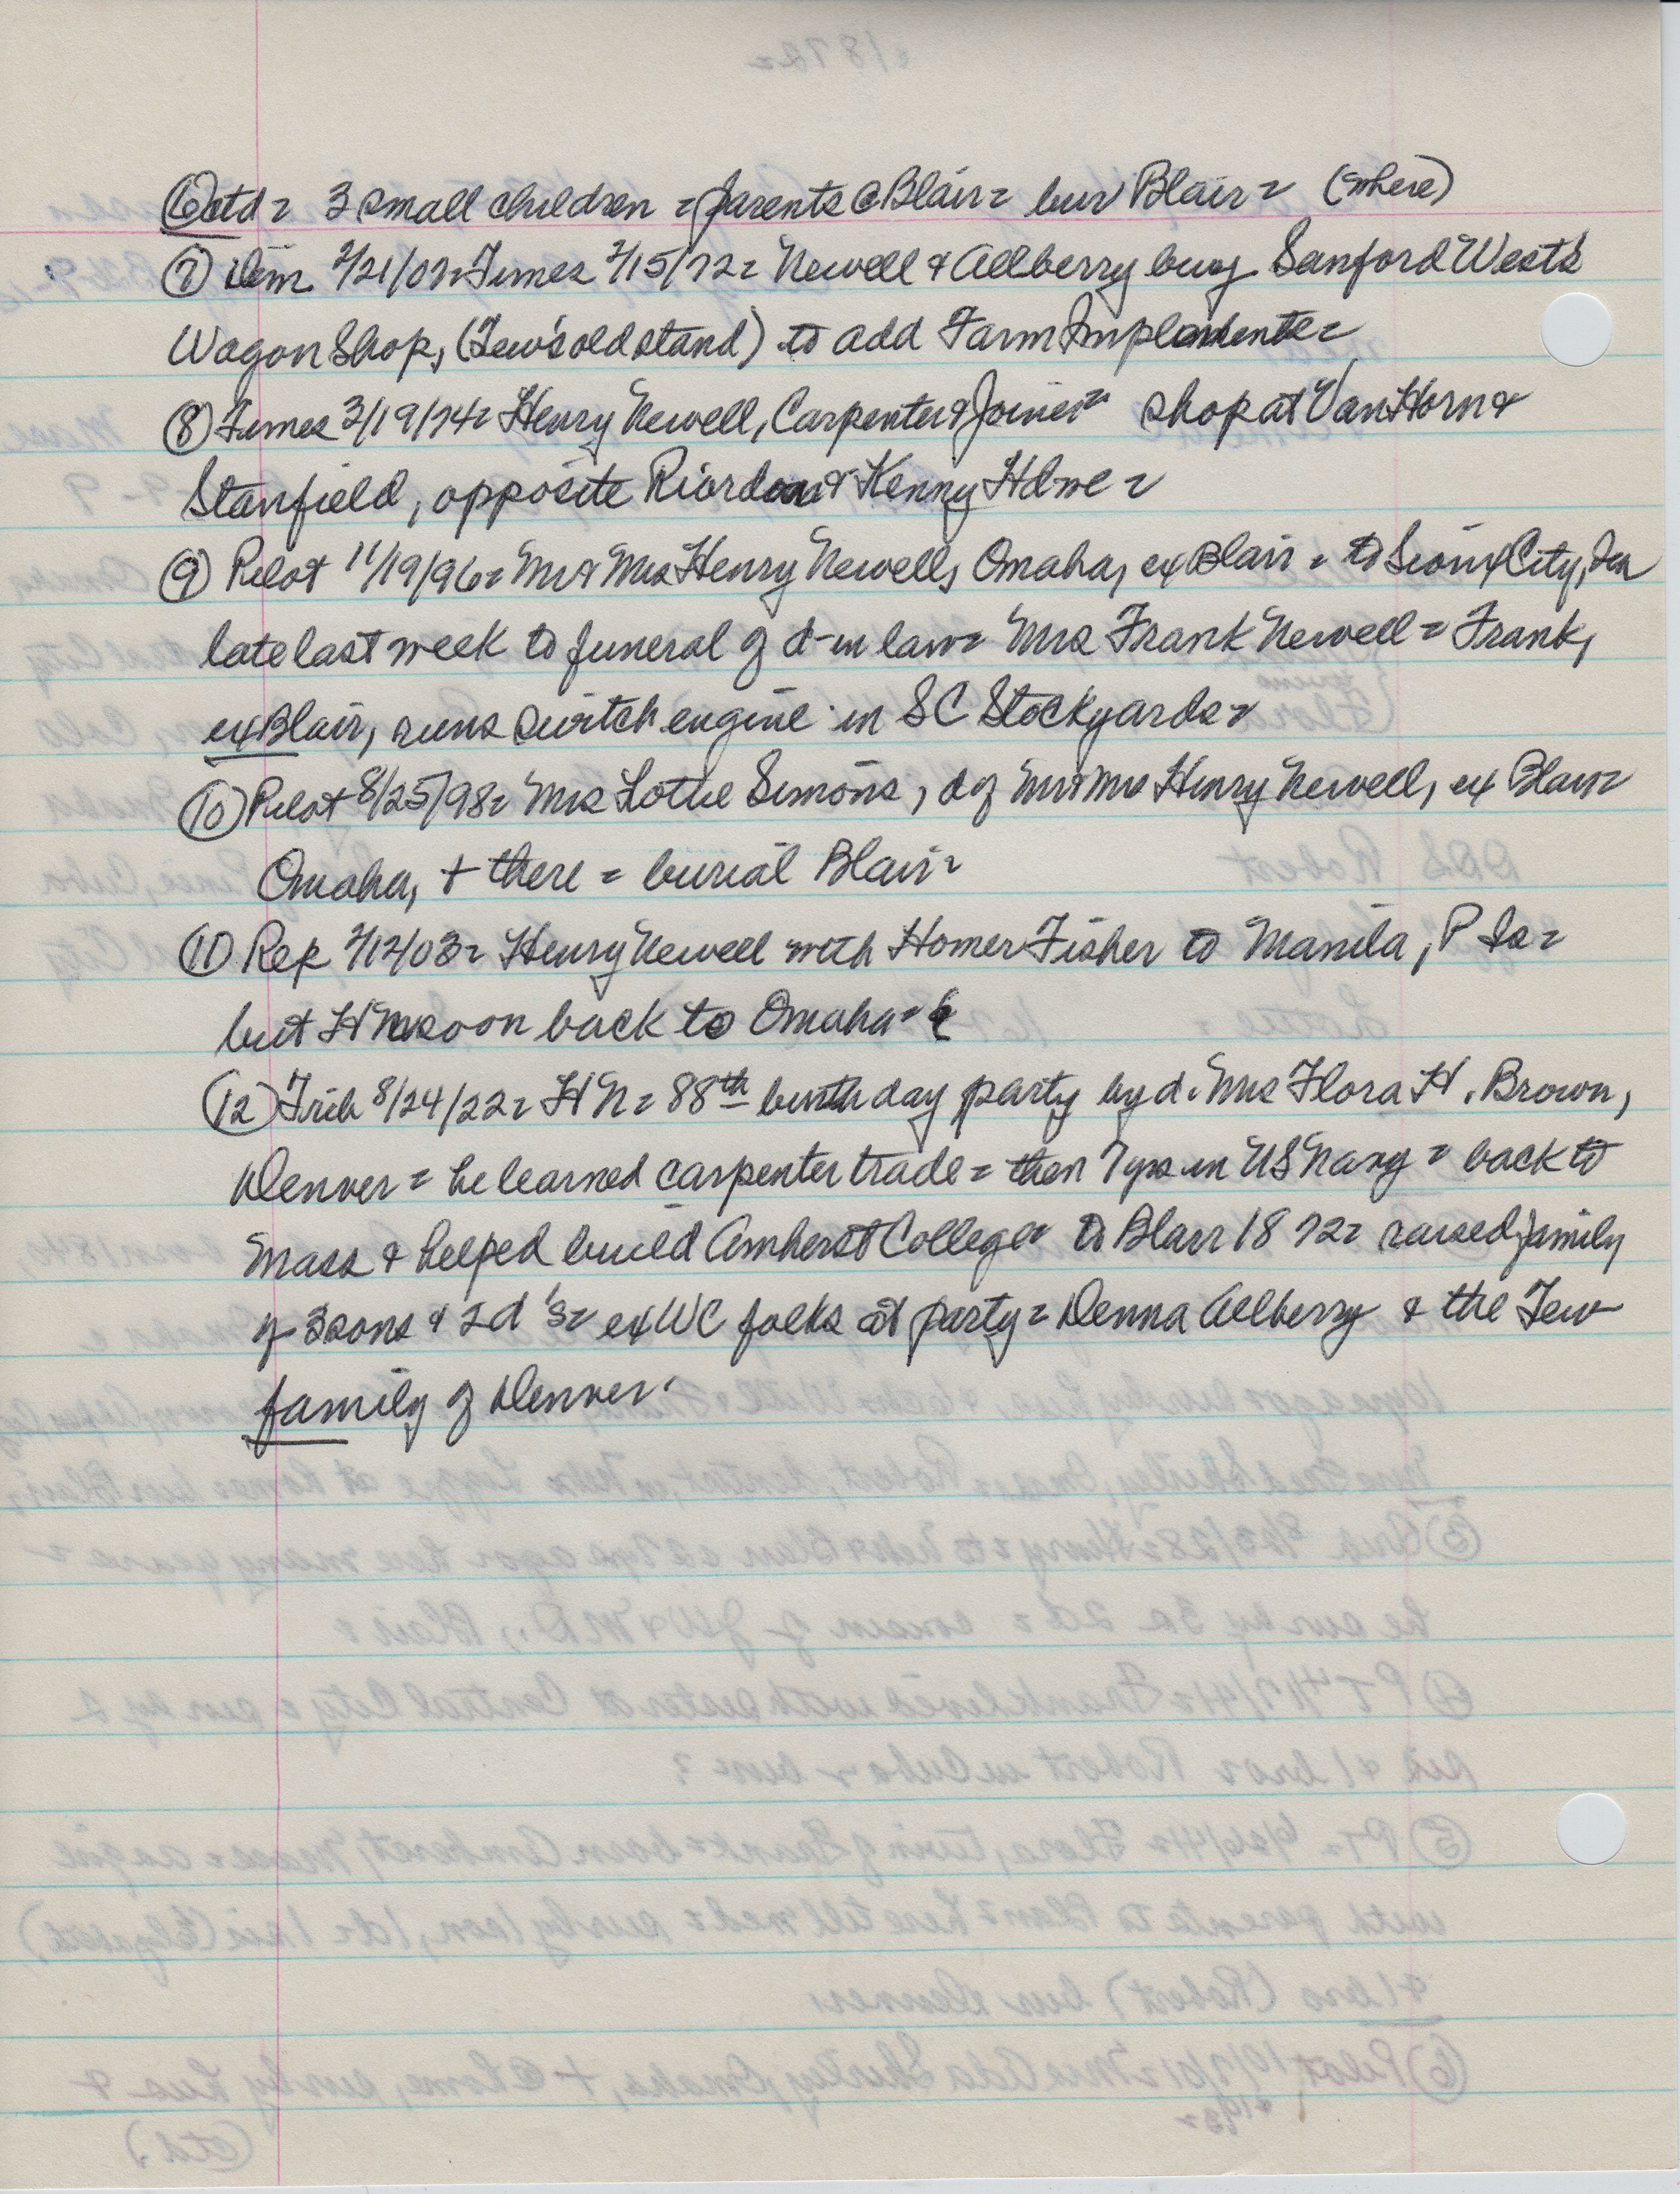 ⑥ctd = 3 small children = parents @ Blair = bur Blair = (where)
⑦ Dem 2/21/07= Times 2/15/72= Newell & Allberry buy Sanford West's
Wagon Shop, (Tew's old stand) to add Farm Implements =
⑧ Times 3/19/74= Henry Newell, Carpenter & Joiner = shop at Van Horn &
Stanfield, opposite Riordan & Kenny Hdwe =
⑨ Pilot 11/19/96= Mr & Mrs Henry Newell, Omaha, ex Blair = to Sioux City, Ia
late last week to funeral of d-in law= Mrs Frank Newell = Frank,
ex Blair, runs switch engine in SC Stockyards =
⑩ Pilot 8/25/98= Mrs Lottie Simons, d of Mr & Mrs Henry Newell, ex Blair=
Omaha, + there = burial Blair=
⑪ Rep 2/12/03= Henry Newell with Homer Fisher to Manila, P Is=
but HN soon back to Omaha =
⑫ Trib 8/24/22= HN= 88th birthday party by d. Mrs Flora H. Brown,
Denver = he learned carpenter trade = then 7 yrs in US Navy = back to
Mass & helped build Amherst College = to Blair 1872= raised family
of 3 sons & 2 d's= ex WC folks at party = Denna Allberry & the Tew
family of Denver.